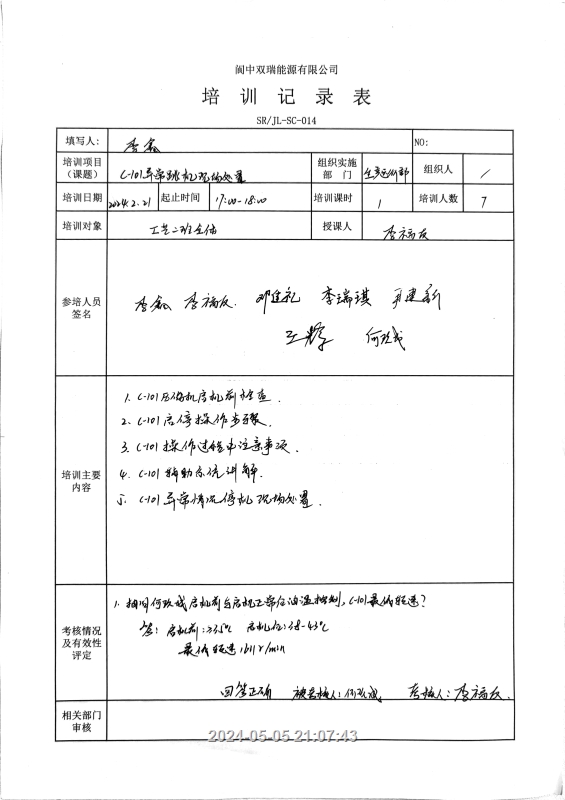 阆中双瑞能源有限公司
培训记录表
SR/JL-SC-014
填写人： 李鑫 NO:
培训项目（课题） C-101异常跳机现场处置 组织实施部门 生产运行部 组织人 /
培训日期 2024.2.21 起止时间 17:00-18:00 培训课时 1 培训人数 7
培训对象 工艺二班全体 授课人 李福友
参培人员签名
李鑫 李福友 邓建礼 李瑞琪
王辉
培训主要内容
1. C-101压缩机启机前检查.
2. C-101启停操作步骤.
3. C-101操作过程中注意事项.
4. C-101辅助系统讲解.
5. C-101异常情况停机现场处置.
考核情况及有效性评定
1. 抽问何玖成启机前与启机正常后油温控制，C-101最低转速？
答：启机前：≥35℃ 启机后：38-43℃
最低转速：1611r/min
回答正确 被考核人：何玖成 考核人：李福友.
相关部门审核
2024-05-05 21:07:43